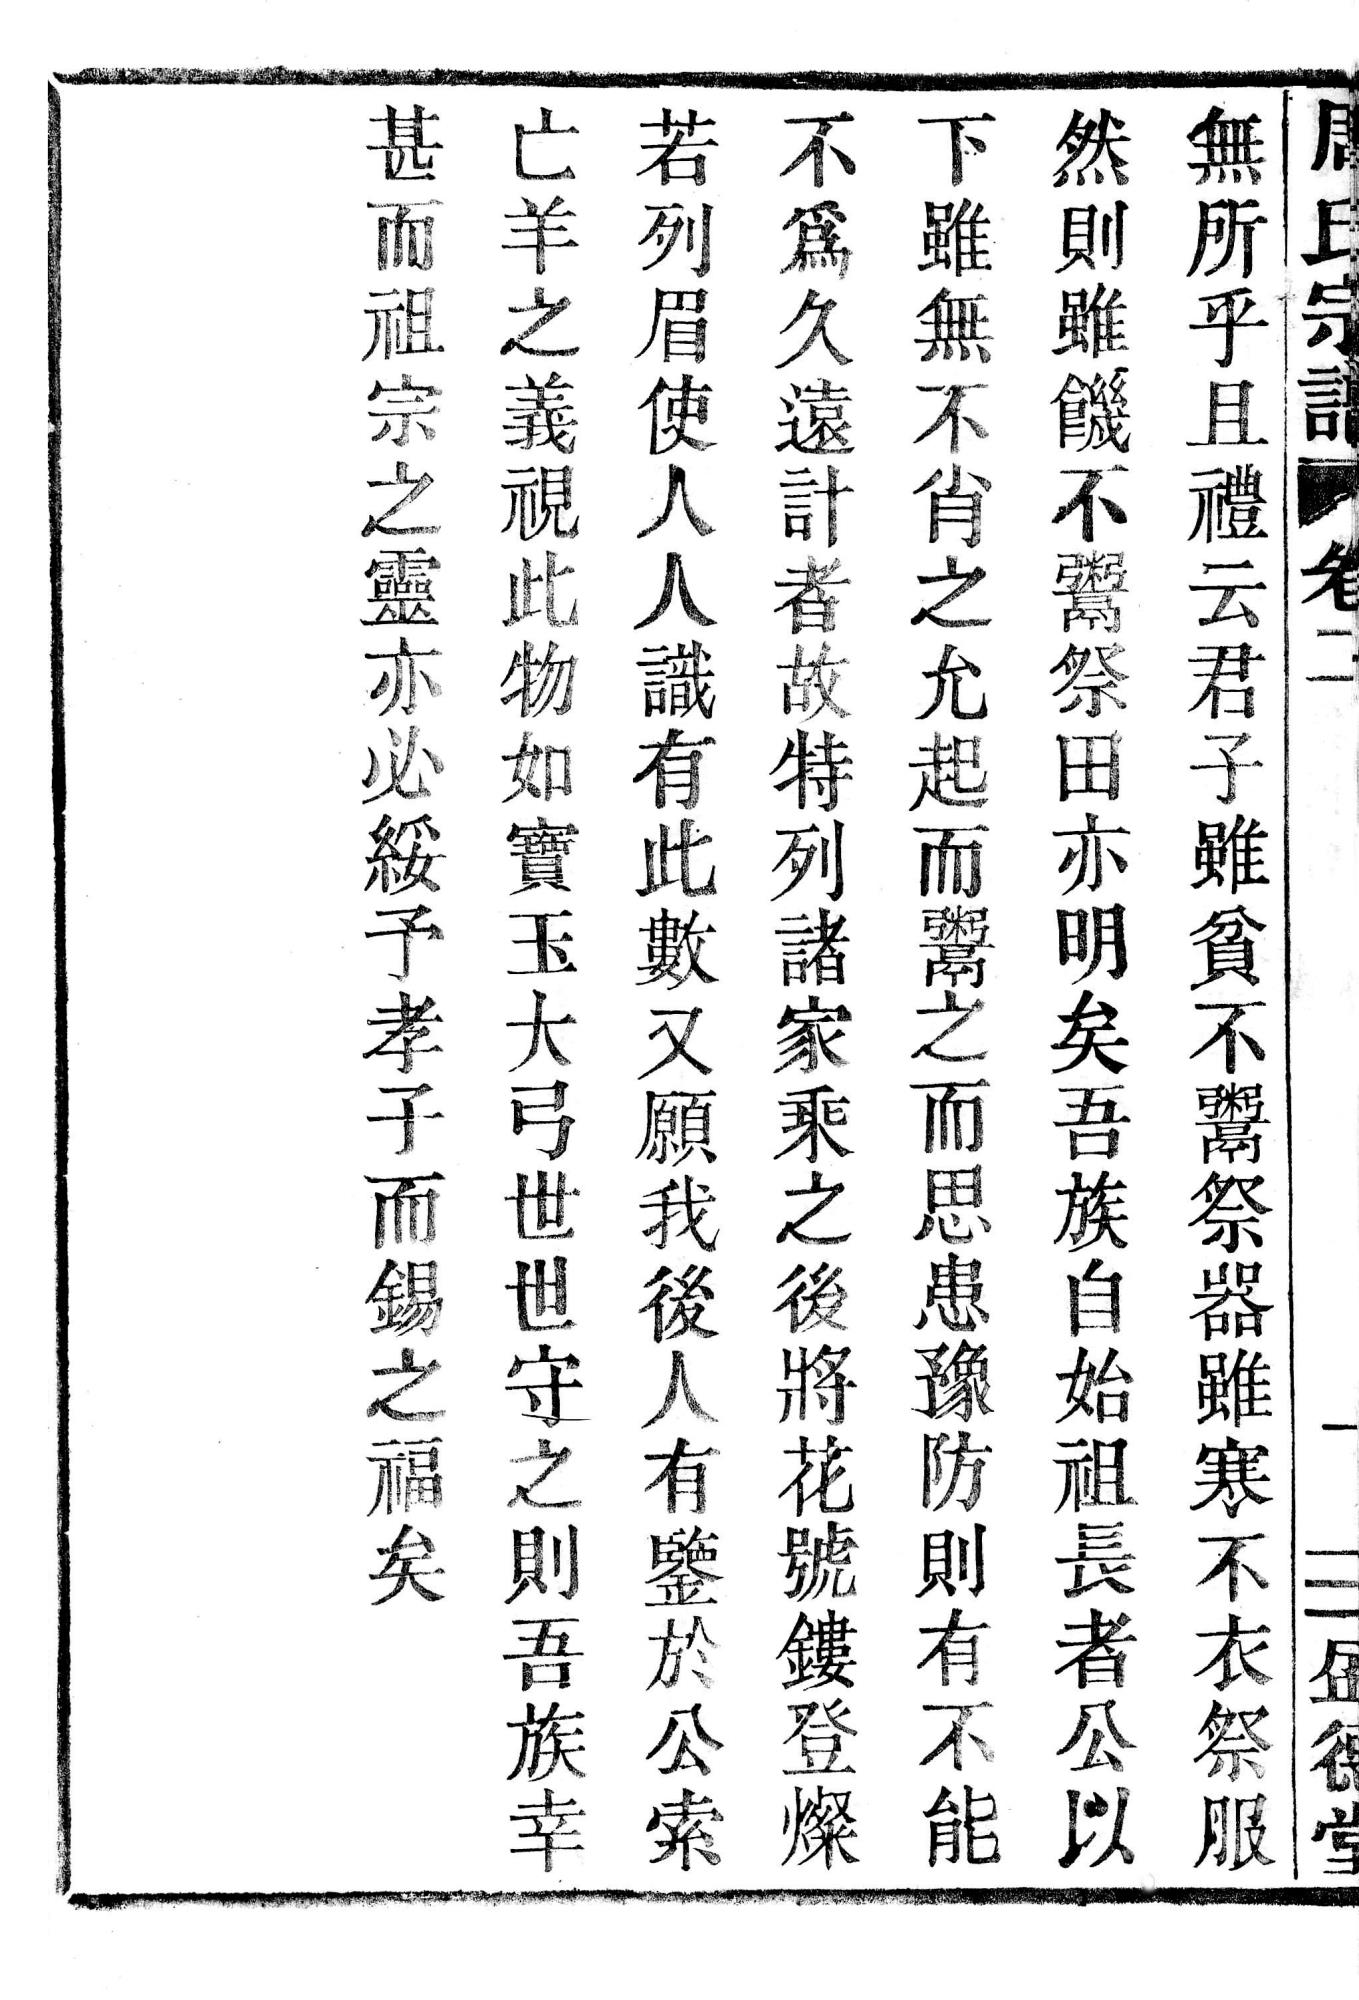 周氏宗譜 卷二 一 三 盛德堂
無所乎且禮云君子雖貧不鬻祭器雖寒不衣祭服
然則雖饑不鬻祭田亦明矣吾族自始祖長者公以
下雖無不肖之允起而鬻之而思患豫防則有不能
不爲久遠計者故特列諸家乘之後將花號鏤登燦
若列眉使人人識有此數又願我後人有鑒於公索
亡羊之義視此物如寶玉大弓世世守之則吾族幸
甚而祖宗之靈亦必綏予孝子而錫之福矣